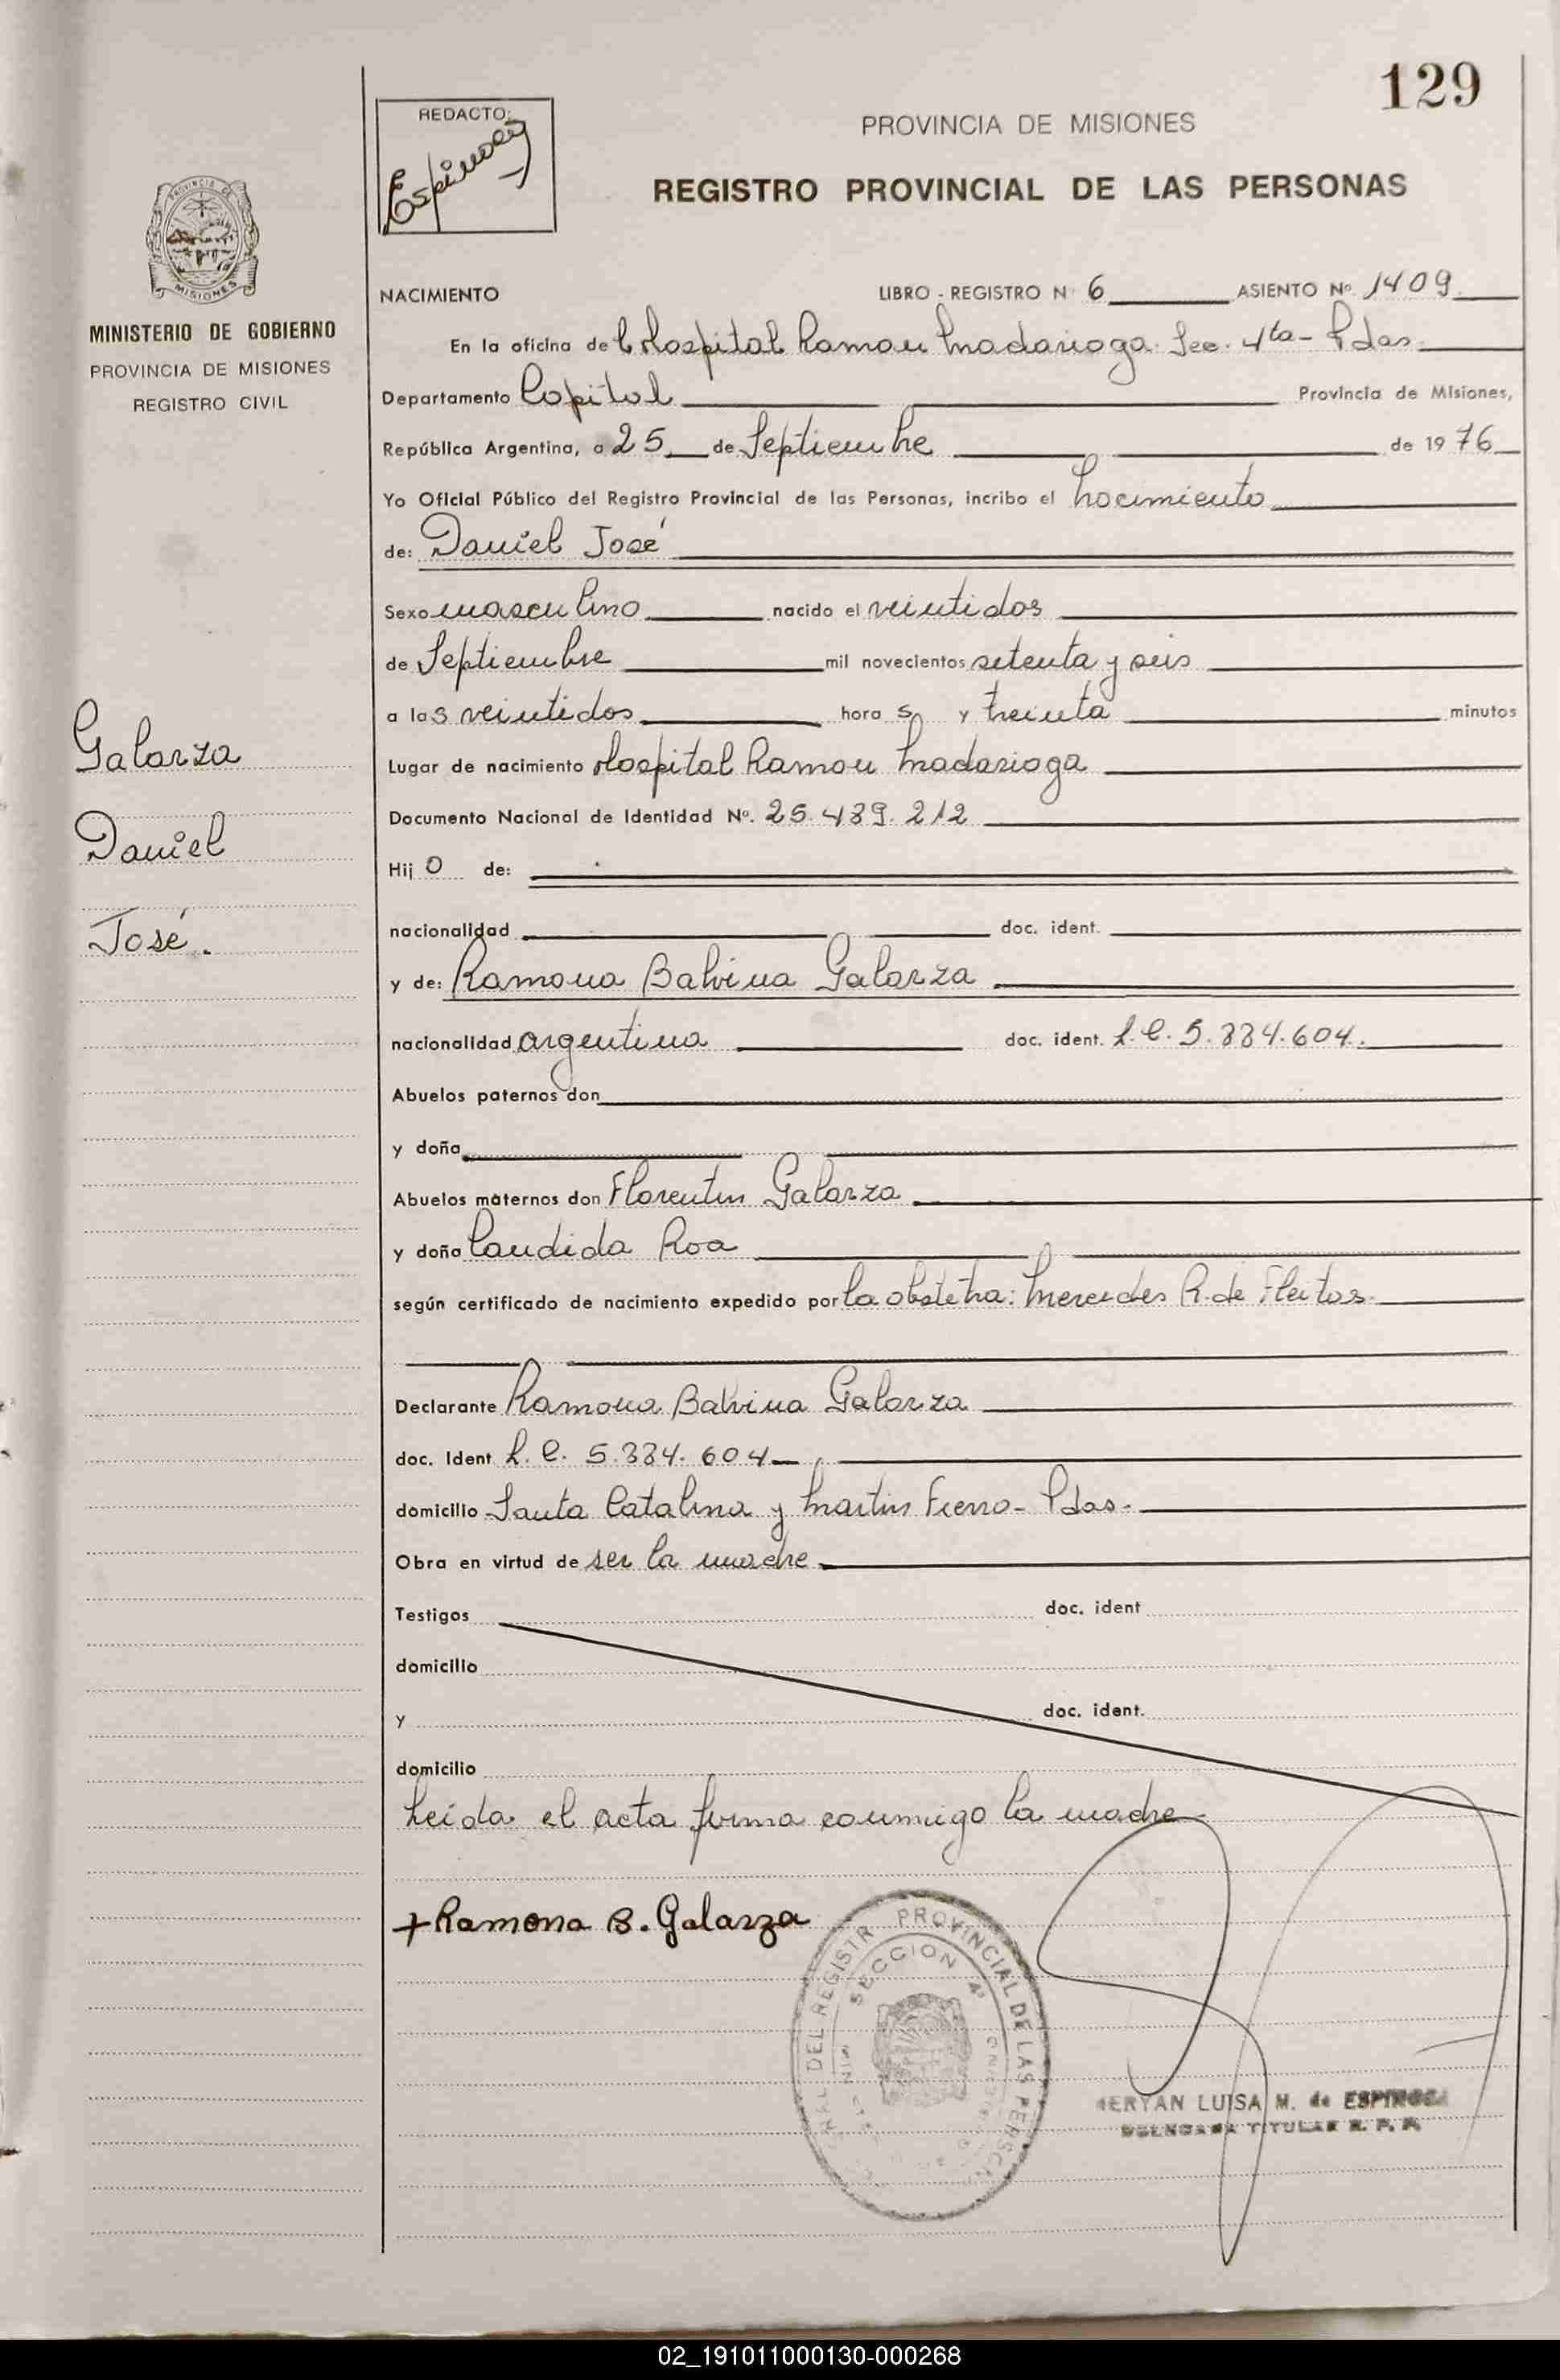 129
REDACTO:
Espinoza
PROVINCIA DE MISIONES
REGISTRO PROVINCIAL DE LAS PERSONAS
PROVINCIA DE
MISIONES
MINISTERIO DE GOBIERNO
PROVINCIA DE MISIONES
REGISTRO CIVIL
NACIMIENTO LIBRO - REGISTRO N° 6 ASIENTO Nº. 1409
En la oficina de Hospital Ramon Madariaga Sec. 4ta - Pdas.
Departamento Capital Provincia de Misiones,
República Argentina, a 25 de Septiembre de 1976
Yo Oficial Público del Registro Provincial de las Personas, incribo el nacimiento
de: Daniel José
Sexo masculino nacido el veintidos
de Septiembre mil novecientos setenta y seis
a las veintidos horas y treinta minutos
Galarza
Daniel
José.
Lugar de nacimiento Hospital Ramon Madariaga
Documento Nacional de Identidad Nº. 25.489.212
Hijo de:
nacionalidad doc. ident.
y de: Ramona Balvina Galarza
nacionalidad argentina doc. ident. L.C. 5.884.604.
Abuelos paternos don
y doña
Abuelos maternos don Florentin Galarza
y doña Candida Roa
según certificado de nacimiento expedido por la obstetra: Mercedes R. de Fleitas
Declarante Ramona Balvina Galarza
doc. Ident L.C. 5.884.604
domicilio Santa Catalina y Martin Fierro - Pdas.
Obra en virtud de ser la madre
Testigos doc. ident
domicilio
y doc. ident.
domicilio
Leída el acta firma conmigo la madre
+ Ramona B. Galarza
DEL REGISTR PROVINCIAL DE LAS PERSON
SECCION 4ª
LUISA M. de ESPINOSA
TITULAR R. P. P.
02_191011000130-000268